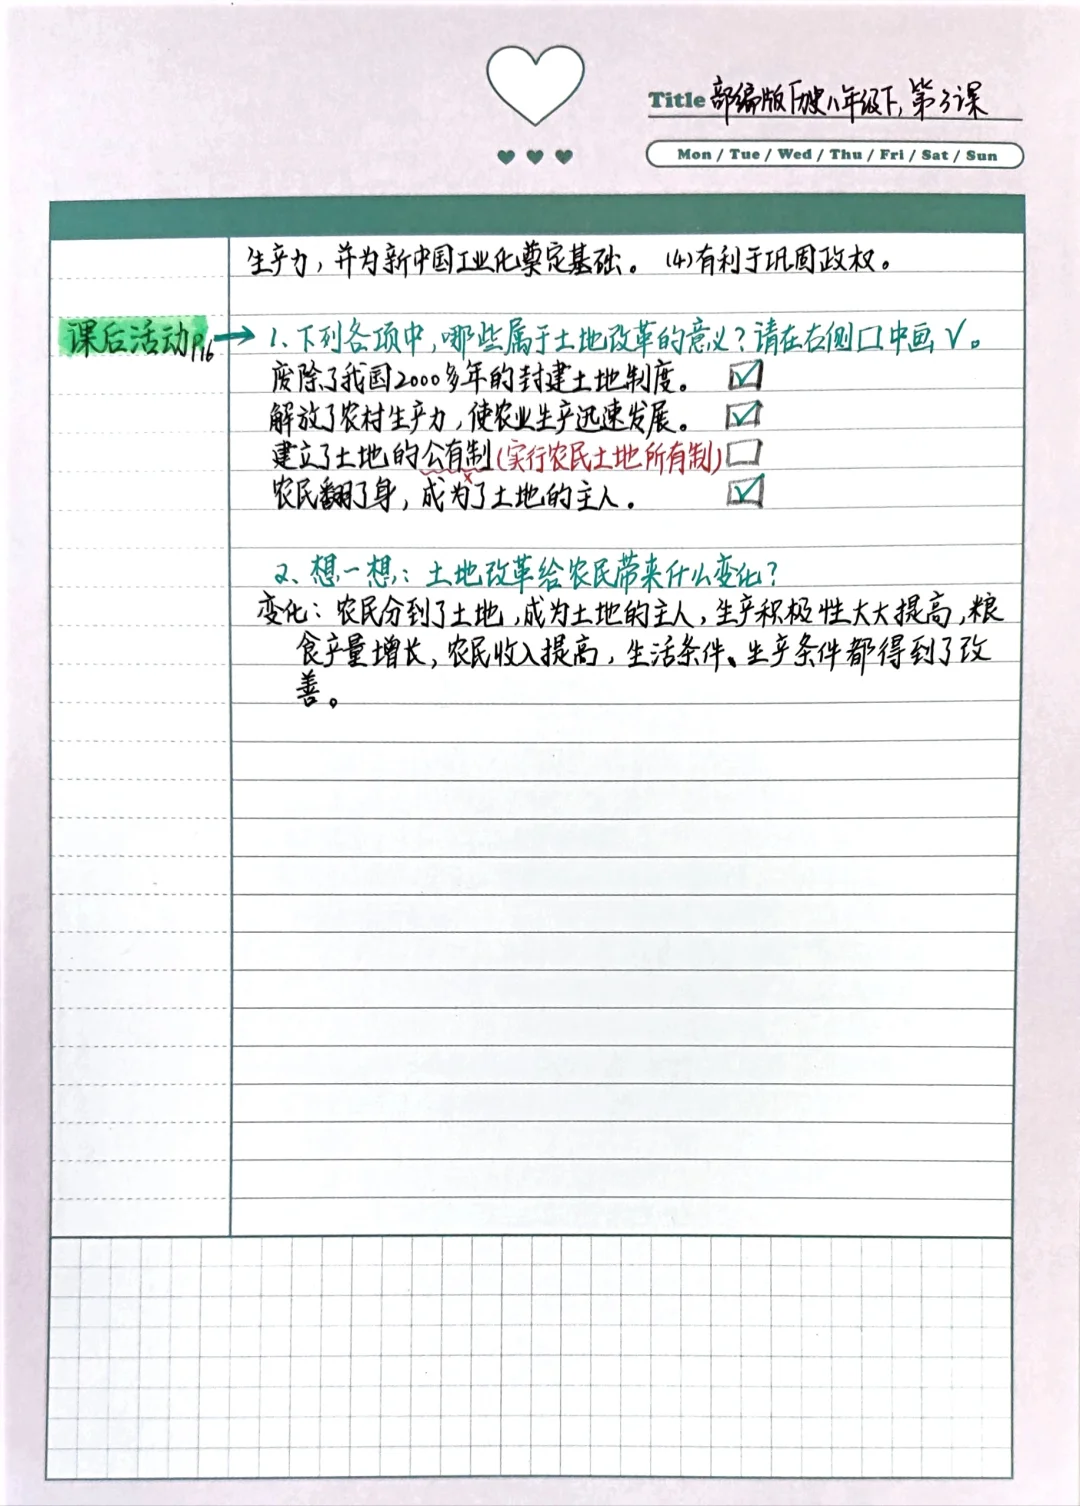 Title 部编版历史八年级下,第3课
Mon / Tue / Wed / Thu / Fri / Sat / Sun
生产力，并为新中国工业化奠定基础。 (4)有利于巩固政权。
课后活动P16 → 1、下列各项中，哪些属于土地改革的意义？请在右侧口中画√。
废除了我国2000多年的封建土地制度。 ☑
解放了农村生产力，使农业生产迅速发展。 ☑
建立了土地的公有制(实行农民土地所有制) ☐
×
农民翻了身，成为了土地的主人。 ☑
2、想一想：土地改革给农民带来什么变化？
变化：农民分到了土地，成为土地的主人，生产积极性大大提高，粮
食产量增长，农民收入提高，生活条件、生产条件都得到了改
善。